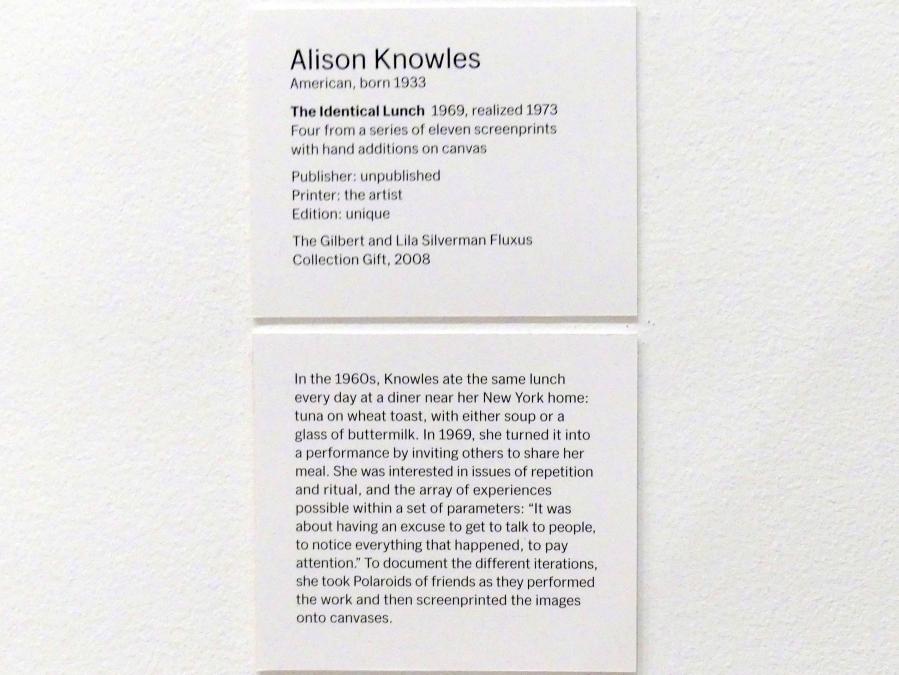 Alison Knowles
American, born 1933
The Identical Lunch 1969, realized 1973
Four from a series of eleven screenprints
with hand additions on canvas
Publisher: unpublished
Printer: the artist
Edition: unique
The Gilbert and Lila Silverman Fluxus
Collection Gift, 2008
In the 1960s, Knowles ate the same lunch
every day at a diner near her New York home:
tuna on wheat toast, with either soup or a
glass of buttermilk. In 1969, she turned it into
a performance by inviting others to share her
meal. She was interested in issues of repetition
and ritual, and the array of experiences
possible within a set of parameters: “It was
about having an excuse to get to talk to people,
to notice everything that happened, to pay
attention.” To document the different iterations,
she took Polaroids of friends as they performed
the work and then screenprinted the images
onto canvases.